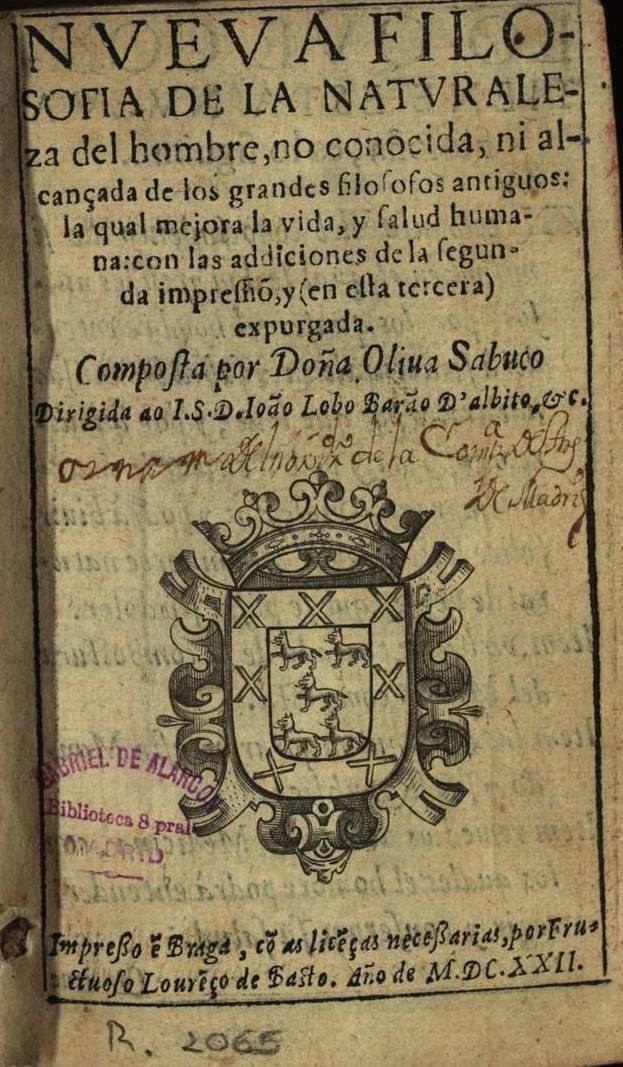 NVEVA FILO-
SOFIA DE LA NATVRALE-
za del hombre, no conocida, ni al-
cançada de los grandes filoſofos antiguos:
la qual mejora la vida, y ſalud huma-
na: con las addiciones de la ſegun-
da impreſſiõ, y (en eſta tercera)
expurgada.
Compoſta por Doña Oliua Sabuco
Dirigida ao I.S.D.Ioão Lobo Barão D'albito, &c.
de la
de Madrid
GABRIEL DE ALARCON
Biblioteca 8 pral
MADRID
Impreßo ẽ Braga, cõ as licẽças neceßarias, por Fru-
ctuoſo Lourẽço de Baſto. Año de M.DC.XXII.
R. 2065